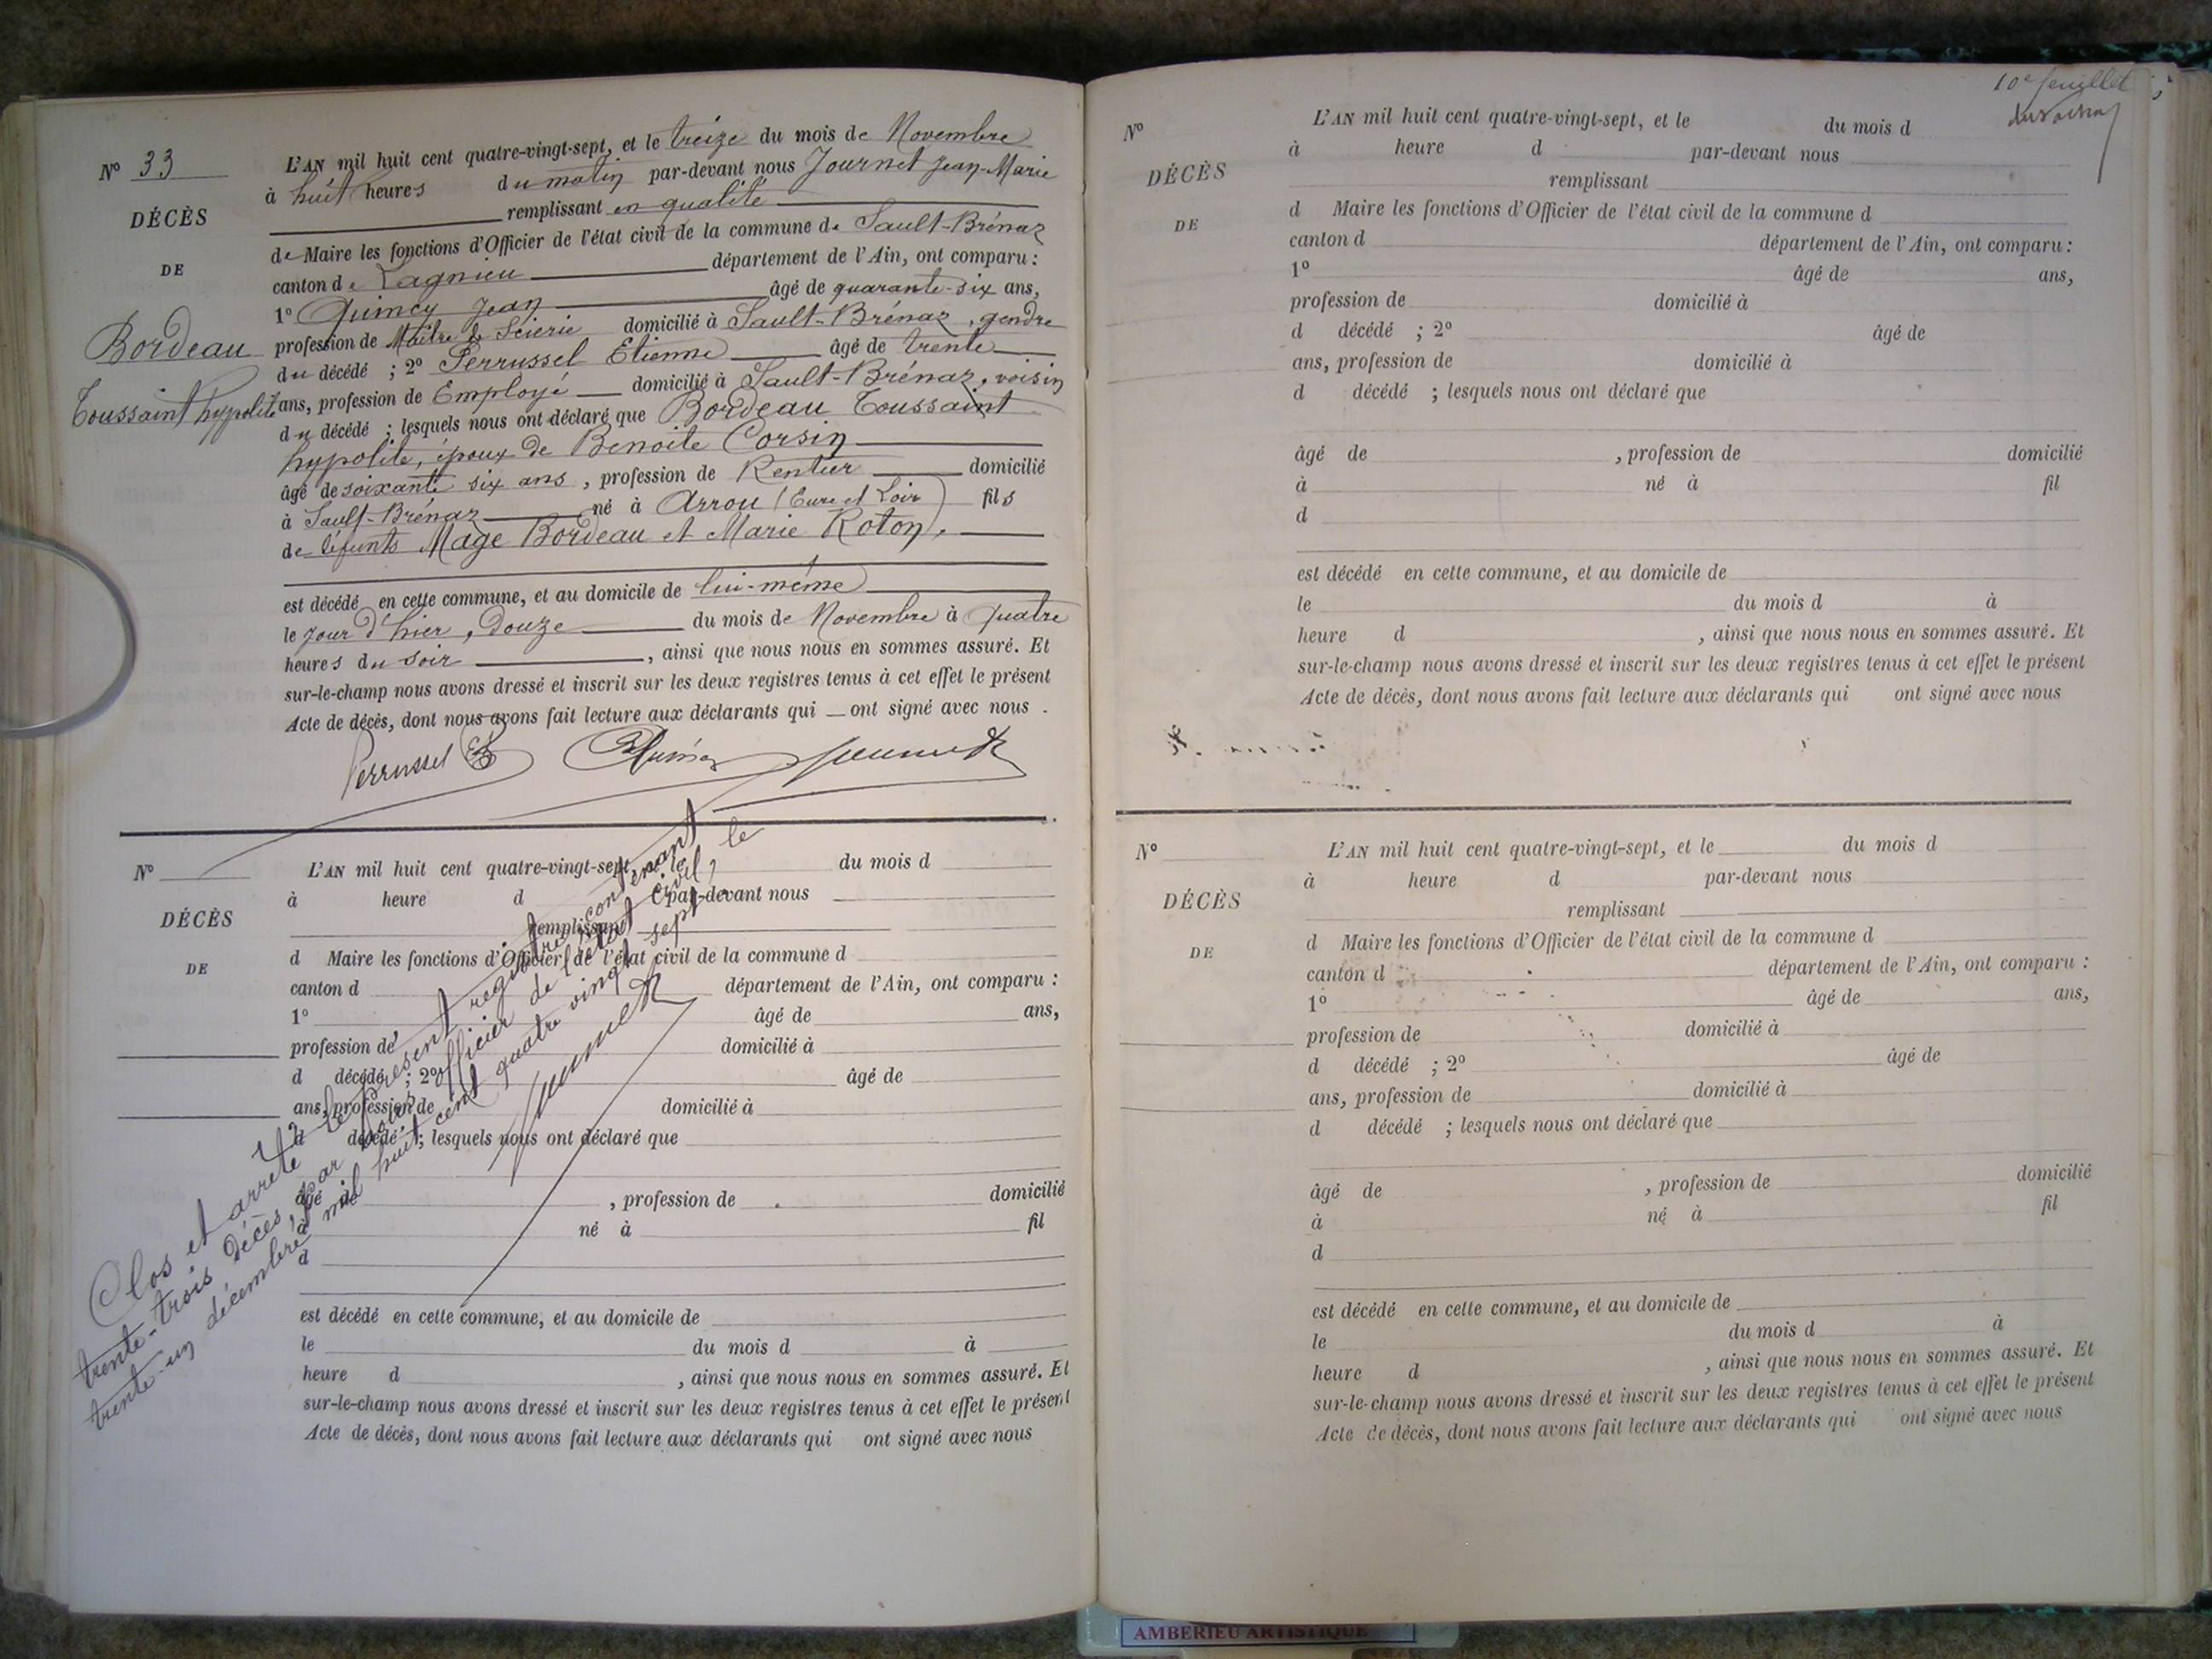 Nº 33
DÉCÈS
DE
Bordeau
Toussaint hypolite
L'AN mil huit cent quatre-vingt-sept, et le treize du mois de Novembre
à huit heures du matin par-devant nous Journet Jean-Marie
remplissant en qualité
de Maire les fonctions d'Officier de l'état civil de la commune de Sault-Brénaz
canton de Lagnieu département de l'Ain, ont comparu :
1º Quincy Jean âgé de quarante-six ans,
profession de Maître de Scierie domicilié à Sault-Brénaz, gendre
du décédé ; 2º Perrussel Etienne âgé de trente
ans, profession de Employé domicilié à Sault-Brénaz, voisin
du décédé ; lesquels nous ont déclaré que Bordeau Toussaint
hypolite, époux de Benoite Corsin
âgé de soixante six ans, profession de Rentier domicilié
à Sault-Brénaz né à Arrou (Eure et Loir) fils
de défunts Mage Bordeau et Marie Roton,
est décédé en cette commune, et au domicile de lui-même
le jour d'hier, douze du mois de Novembre à quatre
heures du soir, ainsi que nous nous en sommes assuré. Et
sur-le-champ nous avons dressé et inscrit sur les deux registres tenus à cet effet le présent
Acte de décès, dont nous avons fait lecture aux déclarants qui — ont signé avec nous.
Perrussel E Quincy Journet
Nº
DÉCÈS
DE
L'AN mil huit cent quatre-vingt-sept, et le du mois d
à heure d par-devant nous
remplissant
d Maire les fonctions d'Officier de l'état civil de la commune d
canton d département de l'Ain, ont comparu :
1º âgé de ans,
profession de domicilié à
d décédé ; 2º âgé de
ans, profession de domicilié à
d décédé ; lesquels nous ont déclaré que
âgé de , profession de domicilié
à né à fil
d
est décédé en cette commune, et au domicile de
le du mois d à
heure d , ainsi que nous nous en sommes assuré. Et
sur-le-champ nous avons dressé et inscrit sur les deux registres tenus à cet effet le présent
Acte de décès, dont nous avons fait lecture aux déclarants qui ont signé avec nous
Clos et arrêté le présent registre contenant
trente-trois décès, par nous officier de l'état civil, le
trente-un décembre mil huit cent quatre vingt sept.
Journet
10e feuillet
Nº
DÉCÈS
DE
L'AN mil huit cent quatre-vingt-sept, et le du mois d
à heure d par-devant nous
remplissant
d Maire les fonctions d'Officier de l'état civil de la commune d
canton d département de l'Ain, ont comparu :
1º âgé de ans,
profession de domicilié à
d décédé ; 2º âgé de
ans, profession de domicilié à
d décédé ; lesquels nous ont déclaré que
âgé de , profession de domicilié
à né à fil
d
est décédé en cette commune, et au domicile de
le du mois d à
heure d , ainsi que nous nous en sommes assuré. Et
sur-le-champ nous avons dressé et inscrit sur les deux registres tenus à cet effet le présent
Acte de décès, dont nous avons fait lecture aux déclarants qui ont signé avec nous
Nº
DÉCÈS
DE
L'AN mil huit cent quatre-vingt-sept, et le du mois d
à heure d par-devant nous
remplissant
d Maire les fonctions d'Officier de l'état civil de la commune d
canton d département de l'Ain, ont comparu :
1º âgé de ans,
profession de domicilié à
d décédé ; 2º âgé de
ans, profession de domicilié à
d décédé ; lesquels nous ont déclaré que
âgé de , profession de domicilié
à né à fil
d
est décédé en cette commune, et au domicile de
le du mois d à
heure d , ainsi que nous nous en sommes assuré. Et
sur-le-champ nous avons dressé et inscrit sur les deux registres tenus à cet effet le présent
Acte de décès, dont nous avons fait lecture aux déclarants qui ont signé avec nous
AMBERIEU ARTISTIQUE